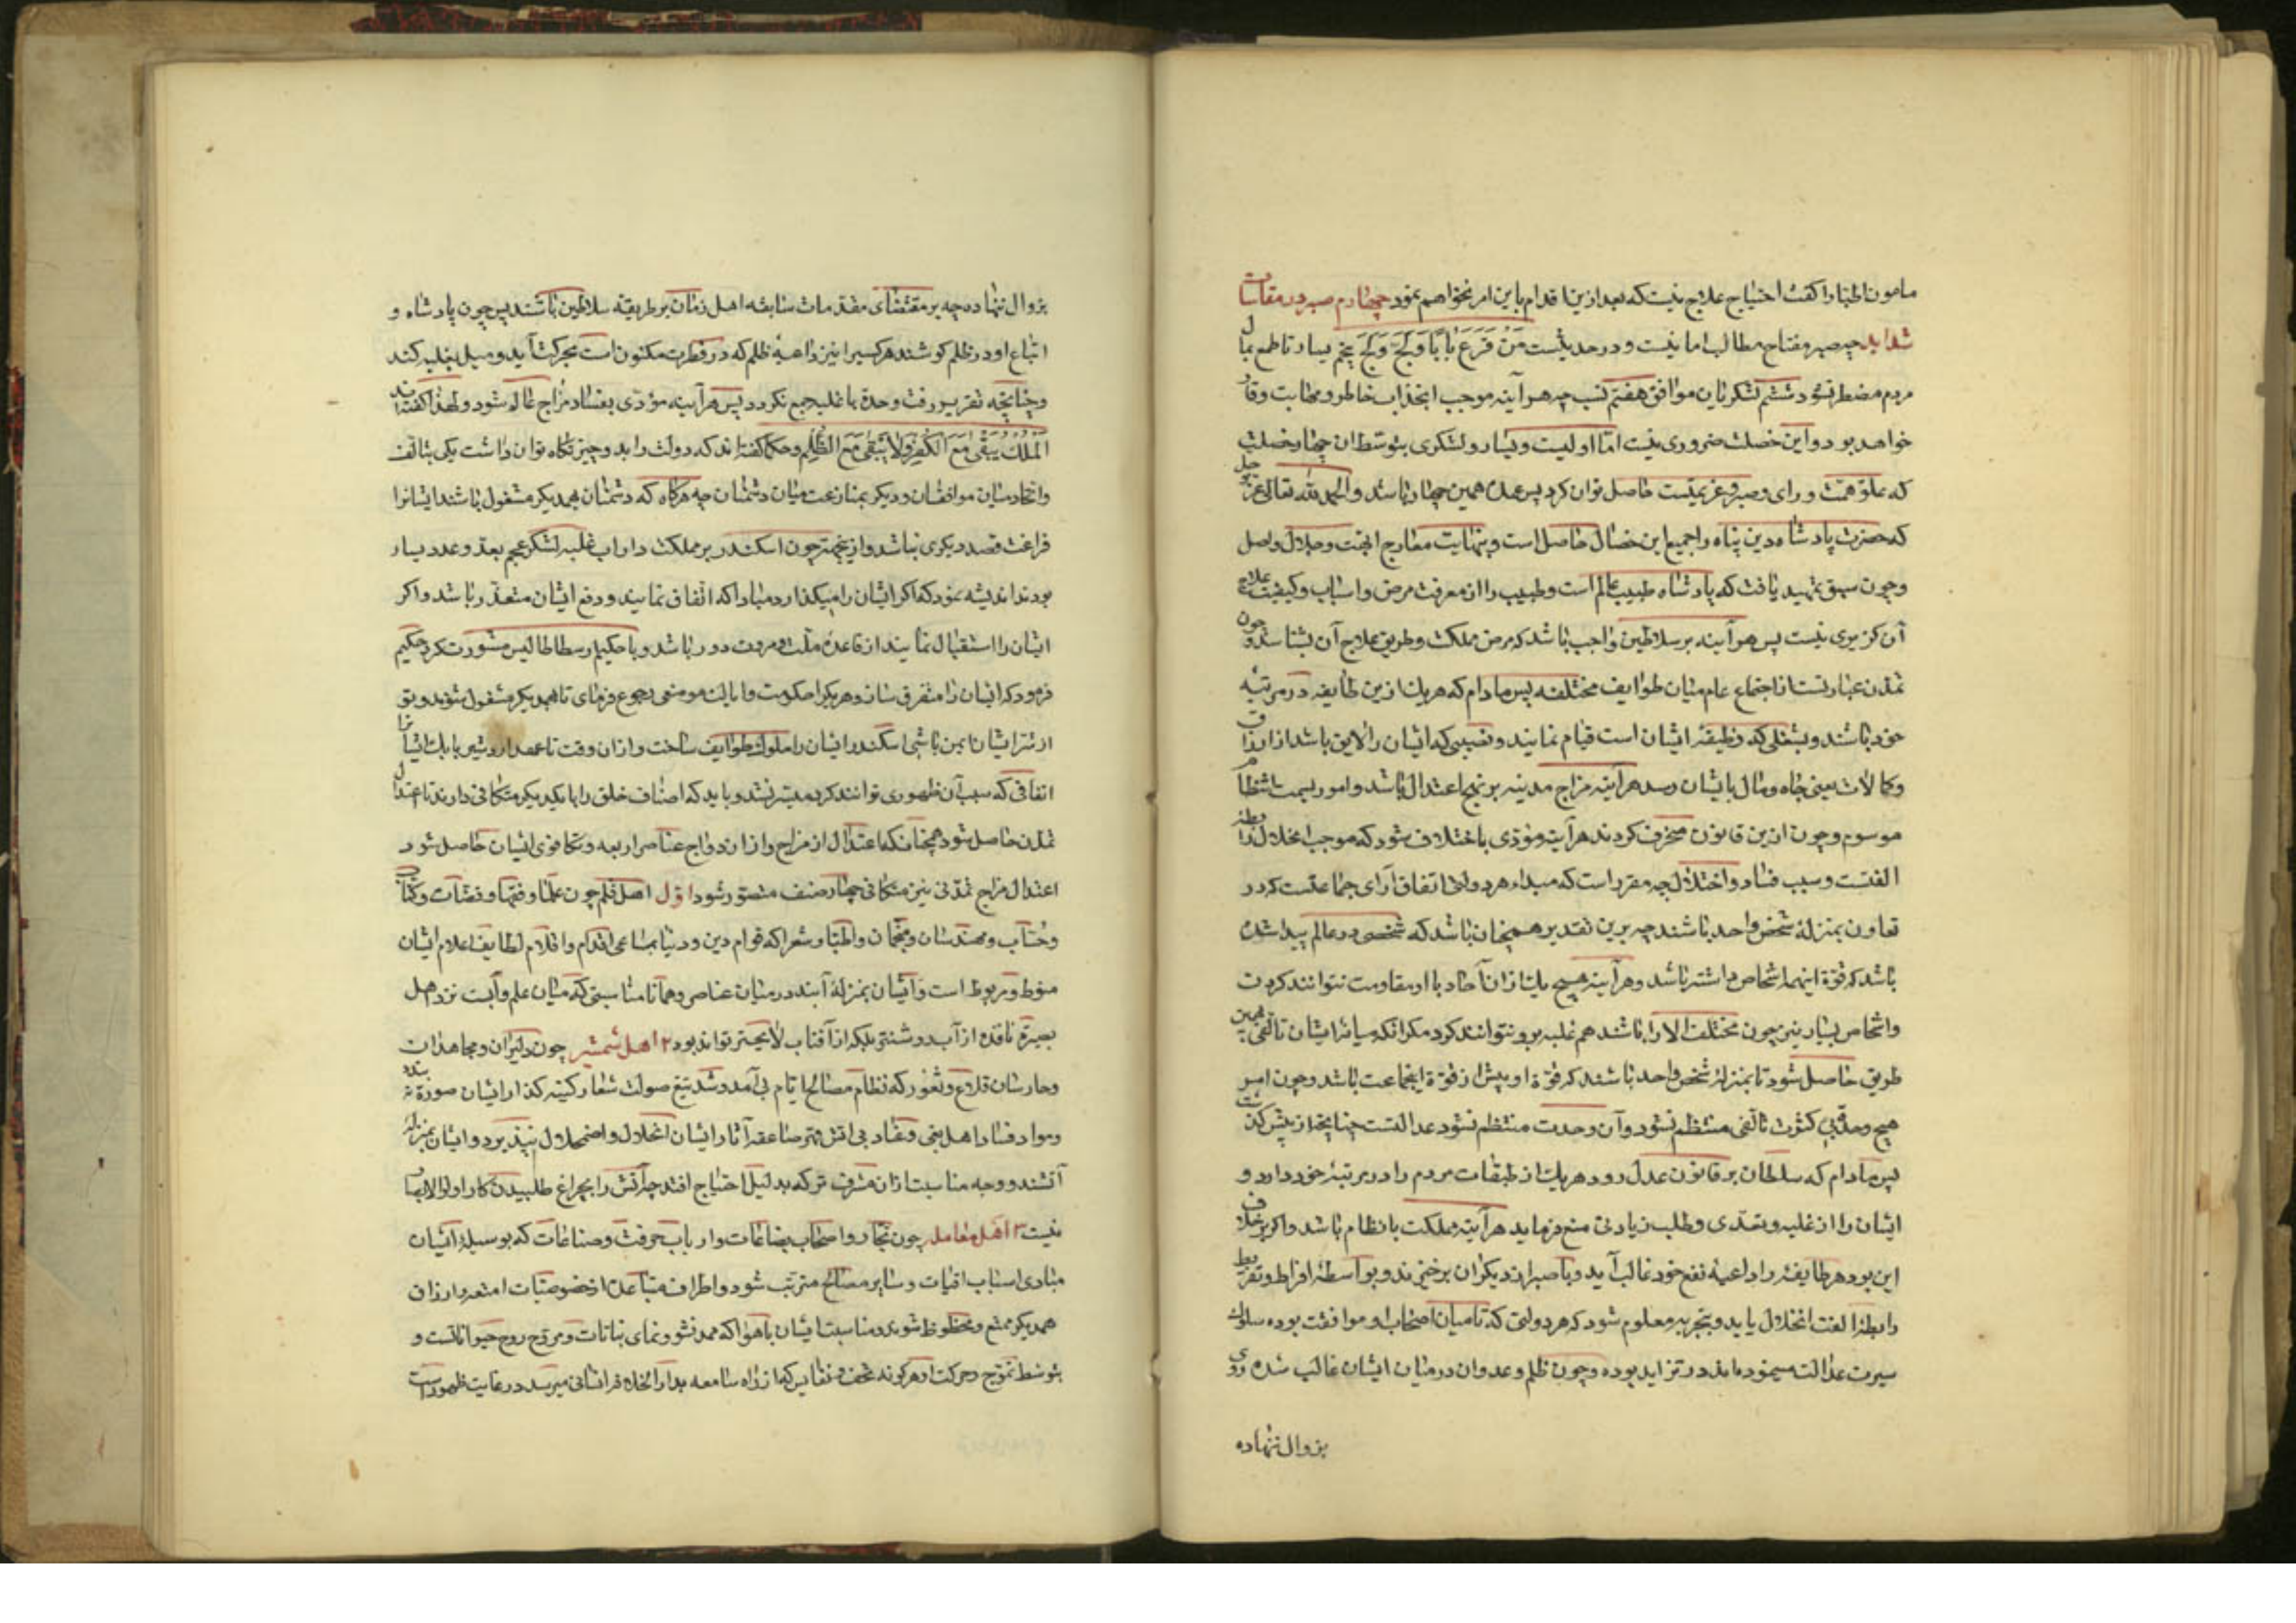 مامون اطبا را کفت احتیاج علاج نیست که بعد ازین اقدام باین امر نخواهم نمود چهارم صبر در مقاسات
شداید چه صبر مفتاح مطالب اما نیست و در حدیثست مَنْ قَرَعَ بَابًا وَلَجَّ وَلَجَ پنجم یسار تا طمع بمال
مردم مضطر نشود ششم لشکریان موافق هفتم نسب چه هرآینه موجب انجذاب خاطر و مهابت و وقار
خواهد بود و این خصلت ضروری نیست اما اولیست و یسار و لشکری بتوسط ان چهار خصلت
که علو همت و رای و صبر و عزیمتست حاصل توان کرد پس عمده همین چهار باشد و الحمد لله تعالی عز و جل
که حضرت پادشاه دین پناه را جمیع این خصال حاصل است و بنهایت معارج ابهت و جلال واصل
و چون سبق تمهید یافت که پادشاه طبیب عالم است و طبیب را از معرفت مرض و اسباب و کیفیت علاج
آن کزیری نیست پس هرآینه بر سلاطین واجب باشد که مرض مملکت و طریق علاج آن بشناسند و چون
تمدن عبارتست از اجتماع عام میان طوایف مختلفه پس مادام که هریک ازین طایفه در مرتبه
خود باشند و بشغلی که وظیفه ایشان است قیام نمایند و نصیبی که ایشان را لایق باشد از ارزاق
و کمالات یعنی جاه و مال بایشان رسد هرآینه مزاج مدینه بر نهج اعتدال باشد و امور بسمت انتظام
موسوم و چون ازین قانون منحرف کردند هرآینه مؤدی باختلاف شود که موجب انحلال رابطهٔ
الفتست و سبب فساد و اختلال چه مقرر است که مبداء هر دولتی اتفاق آرای جماعتیست که در
تعاون بمنزلهٔ شخص واحد باشند چه برین تقدیر همچنان باشد که شخصی در عالم پیدا شده
باشد که قوة اینهمه اشخاص داشته باشد و هرآینه هیچ یک ازان آحاد با او مقاومت نتوانند کردن
و اشخاص بسیار نیز چون مختلف الارا باشند هم غلبه برو نتوانند کرد مکر انکه میانهٔ ایشان تالفی بهمین
طریق حاصل شود تا بمنزلهٔ شخص واحد باشند که قوة او بیش از قوة اینجماعت باشد و چون امر
هیچ وحدتی کثرت تالفی منتظم نشود و آن وحدت منتظم نشود عدالتست چنانچه از پیش کذشت
پس مادام که سلطان بر قانون عدل رود و هریک از طبقات مردم را در مرتبهٔ خود دارد و
ایشان را از غلبه و تعدی و طلب زیادتی منع فرماید هرآینه مملکت بانظام باشد و اکر بر خلاف
این بود هر طایفه را داعیهٔ نفع خود غالب آید و باضرار دیکران برخیزند و بواسطهٔ افراط و تفریط
رابطهٔ الفت انحلال یابد و بتجربه معلوم شود که هر دولتی که تا میان اصحاب او موافقت بوده سلوک
سیرت عدالت مینموده‌اند در تزاید بوده و چون ظلم و عدوان درمیان ایشان غالب شده روی
بزوال نهاده
بزوال نهاده چه بر مقتضای مقدمات سابقه اهل زمان بر طریقه سلاطین باشند پس چون پادشاه و
اتباع او در ظلم کوشند هر کسیرا نیز داعیهٔ ظلم که در فطرت مکنون است بحرکت آید و میل بغلبه کند
و چنانچه تقریر رفت وحدة با غلبه جمع نکردد پس هرآینه مؤدی بفساد مزاج عالم شود و لهذا کفته‌اند
اَلْمُلْکُ یَبْقٰی مَعَ الْکُفْرِ وَلَا یَبْقٰی مَعَ الظُّلْمِ و حکما کفته‌اند که دولت را بدو چیز نکاه توان داشت یکی بتالف
و اتحاد میان موافقان و دیکر بمنازعت میان دشمنان چه هرکاه که دشمنان بهمدیکر مشغول باشند ایشانرا
فراغت قصد دیکری نباشد و ازینجهت چون اسکندر بر مملکت داراب غلبه لشکر عجم بعدد و عدد بسیار
بودند اندیشه نمود که اکر ایشان را میکذارد مبادا که اتفاق نمایند و دفع ایشان متعذر باشد و اکر
ایشان را استقبال نمایند از قاعدهٔ ملت و مروت دور باشد و با حکیم ارسطاطالیس مشورت کرد حکیم
فرمود که ایشان را متفرق ساز و هر یکرا حکومت و ایالت موضعی رجوع فرمای تا بهمدیکر مشغول شوند و تو
از شر ایشان ایمن باشی اسکندر ایشان را ملوک طوایف ساخت و از ان وقت تا عهد اردشیر بابک ایشانرا
اتفاقی که سبب آن ظهوری توانند کرد میسر نشد و باید که اصناف خلق را با یکدیکر متکافی دارند تا اعتدال
تمدن حاصل شود همچنانکه اعتدال از مزاج و از ازدواج عناصر اربعه و تکافوی ایشان حاصل شود
اعتدال مزاج تمدنی نیز متکافی چهار صنف متصور شود اوّل اهل قلم چون علما و فقها و قضات و کتاب
و حساب و مهندسان و منجمان و اطبا و شعرا که قوام دین و دنیا بمساعی اقدام و اقلام لطایف اعلام ایشان
منوط و مربوط است و ایشان بمنزلهٔ آبند درمیان عناصر و همانا مناسبتی که میان علم و آبست نزد اهل
بصیرة ناقده از آب روشنتر بلکه از آفتاب لایحتر تواند بود ۲ اهل شمشیر چون دلیران و مجاهدان
و حارسان قلاع و ثغور که نظام مصالح ایام بی آمد و شد تیغ صولت شعار کینه کذار ایشان صورة نبندد
و مواد فساد اهل بغی و عناد بی آتش قهر صاعقه آثار ایشان انحلال و اضمحلال نپذیرد و ایشان بمنزلهٔ
آتشند و وجه مناسبت ازان مشرف تر که بدلیل احتیاج افتد چه آتش را بچراغ طلبیدن کار اولوالابصار
نیست ۳ اهل معامله چون تجار و اصحاب بضاعات و ارباب حرفت و صناعات که بوسیلهٔ ایشان
مبادی اسباب اقوات و سایر مصالح مترتب شود و اطراف متباعده از خصوصیات امتعه و ارزاق
همدیکر متمتع و محظوظ شوند و مناسبت ایشان با هوا که ممد نشو و نمای نباتات و مروح روح حیواناتست و
بتوسط تموج و حرکت او هر کونه تحف و نفایس که از راه سامعه بدارالخلافه انسانی میرسد در غایت ظهور است